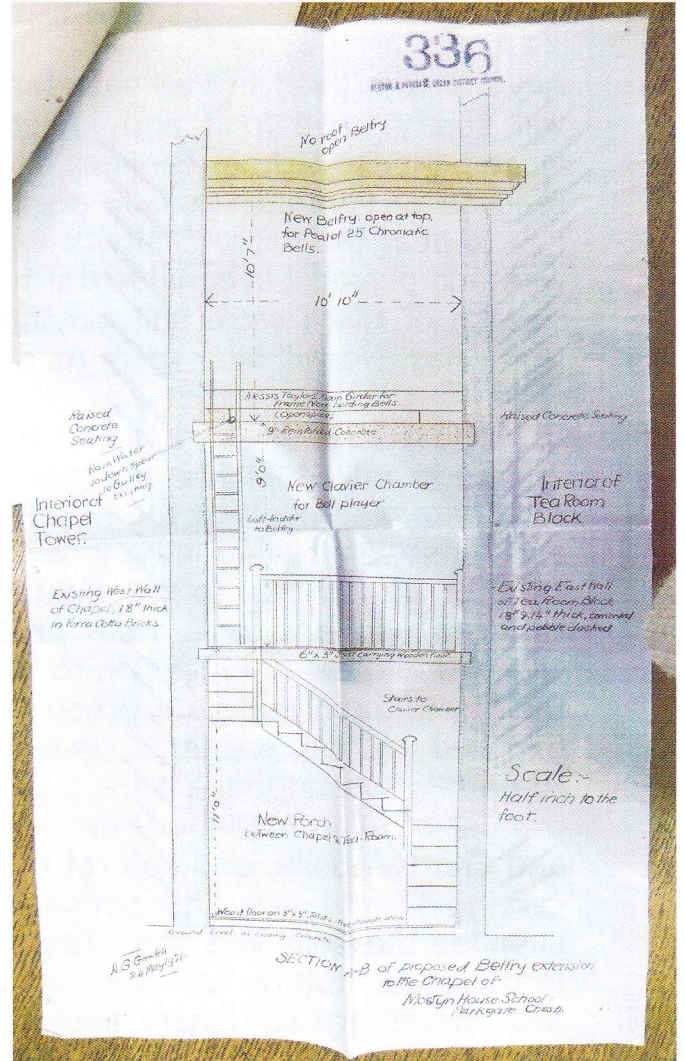 336
NESTON & PARKGATE URBAN DISTRICT COUNCIL.
No roof:
open Belfry
New Belfry open at top,
for Peal of 25 Chromatic
Bells.
10' 7"
10' 10"
Messrs Taylors Main Girder for
Frame Work holding Bells.
(open space)
Raised
Concrete
Seating
Raised Concrete Seating
9" Reinforced Concrete
Rain Water
to down spout
to Gulley
existing
9' 0"
New Clavier Chamber
for Bell player
Loft-ladder
to Belfry
Interior of
Chapel
Tower.
Interior of
Tea Room
Block
Existing West Wall
of Chapel, 18" thick
in Terra Cotta Bricks.
Existing East Wall
of Tea Room Block
18" & 14" thick, cemented
and pebble dashed
6" x 3" Joist Carrying Wooden Floor.
Stairs to
Clavier Chamber
11' 0"
New Porch
between Chapel & Tea-Room.
Scale:-
Half inch to the
foot.
Wood floor on 3" x 3" Joists
Ground Level
Concrete
A.G. Grenfell
May 1921.
SECTION A-B of proposed Belfry extension
to the Chapel of
Mostyn House School:
Parkgate Chesh.